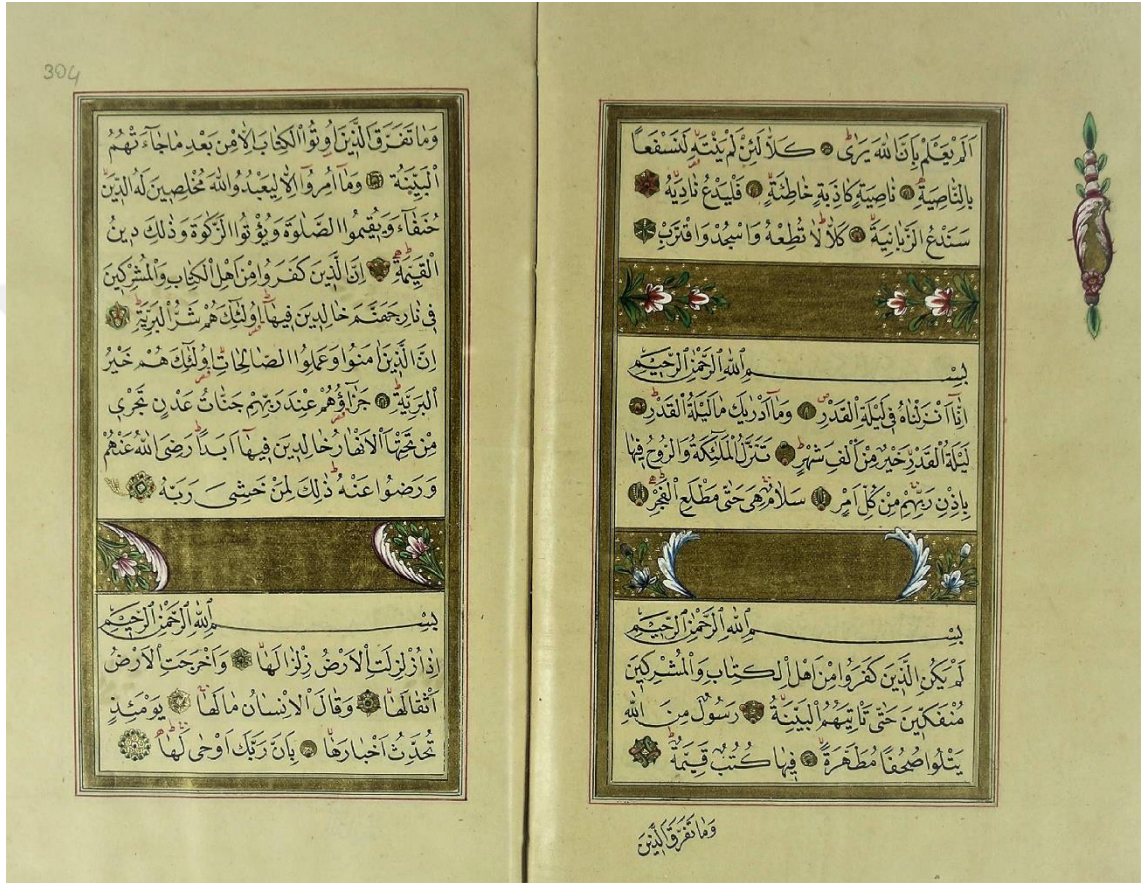 اَلَمْ يَعْلَمْ بِاَنَّ اللّٰهَ يَرٰىۜ كَلَّا لَئِنْ لَمْ يَنْتَهِ لَنَسْفَعاً
بِالنَّاصِيَةِۙ نَاصِيَةٍ كَاذِبَةٍ خَاطِئَةٍۚ فَلْيَدْعُ نَادِيَهُۙ
سَنَدْعُ الزَّبَانِيَةَۙ كَلَّاۜ لَا تُطِعْهُ وَاسْجُدْ وَاقْتَرِبْ
بِسْمِ اللّٰهِ الرَّحْمٰنِ الرَّحِيمِ
اِنَّٓا اَنْزَلْنَاهُ فِى لَيْلَةِ الْقَدْرِۚ وَمَٓا اَدْرٰيكَ مَا لَيْلَةُ الْقَدْرِۜ
لَيْلَةُ الْقَدْرِ خَيْرٌ مِنْ اَلْفِ شَهْرٍۜ تَنَزَّلُ الْمَلٰٓئِكَةُ وَالرُّوحُ فِيهَا
بِاِذْنِ رَبِّهِمْ مِنْ كُلِّ اَمْرٍۙ سَلَامٌ هِىَ حَتّٰى مَطْلَعِ الْفَجْرِ
بِسْمِ اللّٰهِ الرَّحْمٰنِ الرَّحِيمِ
لَمْ يَكُنِ الَّذِينَ كَفَرُوا مِنْ اَهْلِ الْكِتَابِ وَالْمُشْرِكِينَ
مُنْفَكِّينَ حَتّٰى تَاْتِيَهُمُ الْبَيِّنَةُۙ رَسُولٌ مِنَ اللّٰهِ
يَتْلُوا صُحُفاً مُطَهَّرَةًۙ فِيهَا كُتُبٌ قَيِّمَةٌۜ
وَمَا تَفَرَّقَ الَّذِينَ
304
وَمَا تَفَرَّقَ الَّذِينَ اُو۫تُوا الْكِتَابَ اِلَّا مِنْ بَعْدِ مَا جَٓاءَتْهُمُ
الْبَيِّنَةُۜ وَمَٓا اُمِرُٓوا اِلَّا لِيَعْبُدُوا اللّٰهَ مُخْلِصِينَ لَهُ الدِّينَ
حُنَفَٓاءَ وَيُقِيمُوا الصَّلٰوةَ وَيُؤْتُوا الزَّكٰوةَ وَذٰلِكَ دِينُ
الْقَيِّمَةِۜ اِنَّ الَّذِينَ كَفَرُوا مِنْ اَهْلِ الْكِتَابِ وَالْمُشْرِكِينَ
فِى نَارِ جَهَنَّمَ خَالِدِينَ فِيهَاۜ اُو۬لٰٓئِكَ هُمْ شَرُّ الْبَرِيَّةِۜ
اِنَّ الَّذِينَ اٰمَنُوا وَعَمِلُوا الصَّالِحَاتِ اُو۬لٰٓئِكَ هُمْ خَيْرُ
الْبَرِيَّةِۜ جَزَٓاؤُ۬هُمْ عِنْدَ رَبِّهِمْ جَنَّاتُ عَدْنٍ تَجْرِى
مِنْ تَحْتِهَا الْاَنْهَارُ خَالِدِينَ فِيهَٓا اَبَداًۜ رَضِىَ اللّٰهُ عَنْهُمْ
وَرَضُوا عَنْهُۜ ذٰلِكَ لِمَنْ خَشِىَ رَبَّهُ
بِسْمِ اللّٰهِ الرَّحْمٰنِ الرَّحِيمِ
اِذَا زُلْزِلَتِ الْاَرْضُ زِلْزَالَهَاۙ وَاَخْرَجَتِ الْاَرْضُ
اَثْقَالَهَاۙ وَقَالَ الْاِنْسَانُ مَا لَهَاۚ يَوْمَئِذٍ
تُحَدِّثُ اَخْبَارَهَاۙ بِاَنَّ رَبَّكَ اَوْحٰى لَهَاۜ